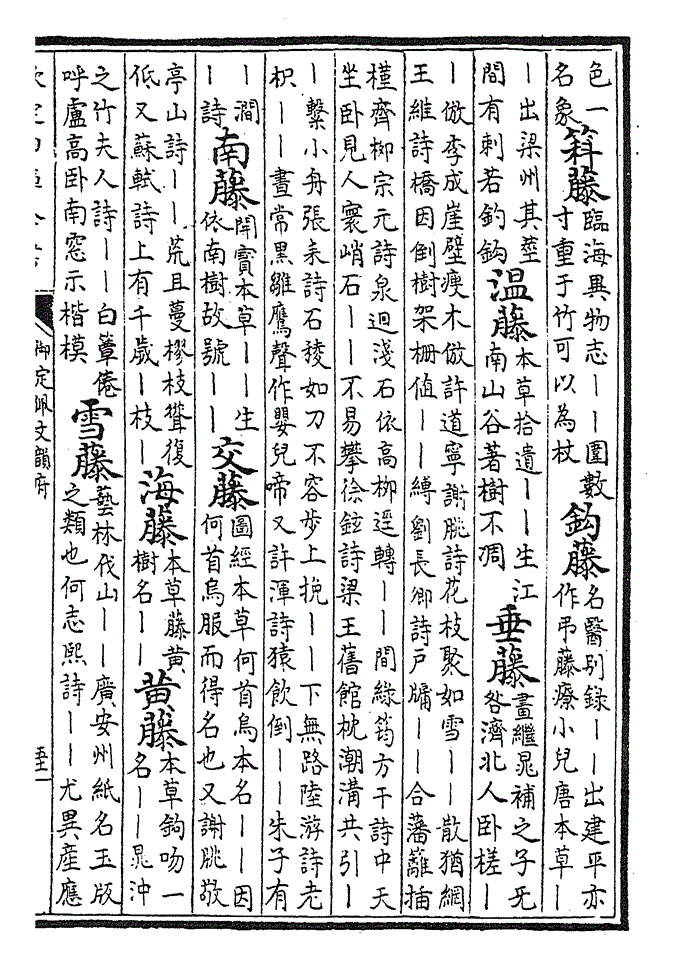 色一
名象
藤
臨海異物志丨丨圍數
寸重于竹可以為杖
鈎藤
名醫别録丨丨出建平亦
作弔藤療小兒唐本草丨
丨出梁州其莖
間有刺若釣鈎
温藤
本草拾遺丨丨生江
南山谷著樹不凋
垂藤
畫繼晁補之子旡
咎濟北人卧槎丨
丨倣李成崖壁瘦木倣許道寧謝朓詩花枝聚如雪丨丨散猶網
王維詩橋因倒樹架栅值丨丨縛劉長卿詩戸牖丨丨合藩籬插
槿齊柳宗元詩泉迴淺石依高柳逕轉丨丨間緑筠方干詩中天
坐卧見人寰峭石丨丨不易攀徐鉉詩梁王舊館枕潮溝共引丨
丨繫小舟張耒詩石稜如刀不容歩上挽丨丨下無路陸游詩老
枳丨丨晝常黒雛鷹聲作嬰兒啼又許渾詩猿飲倒丨丨朱子有
丨澗
丨詩
南藤
開寳本草丨丨生
依南樹故號丨丨
交藤
圖經本草何首烏本名丨丨因
何首烏服而得名也又謝朓敬
亭山詩丨丨荒且蔓樛枝聳復
低又蘇軾詩上有千歳丨枝丨
海藤
本草藤黄
樹名丨丨
黄藤
本草鈎吻一
名丨丨晁沖
之竹夫人詩丨丨白簟倦
呼盧高卧南窓示楷模
雪藤
藝林伐山丨丨廣安州紙名玉版
之類也何志熙詩丨丨尤異産應
御定佩文韻府